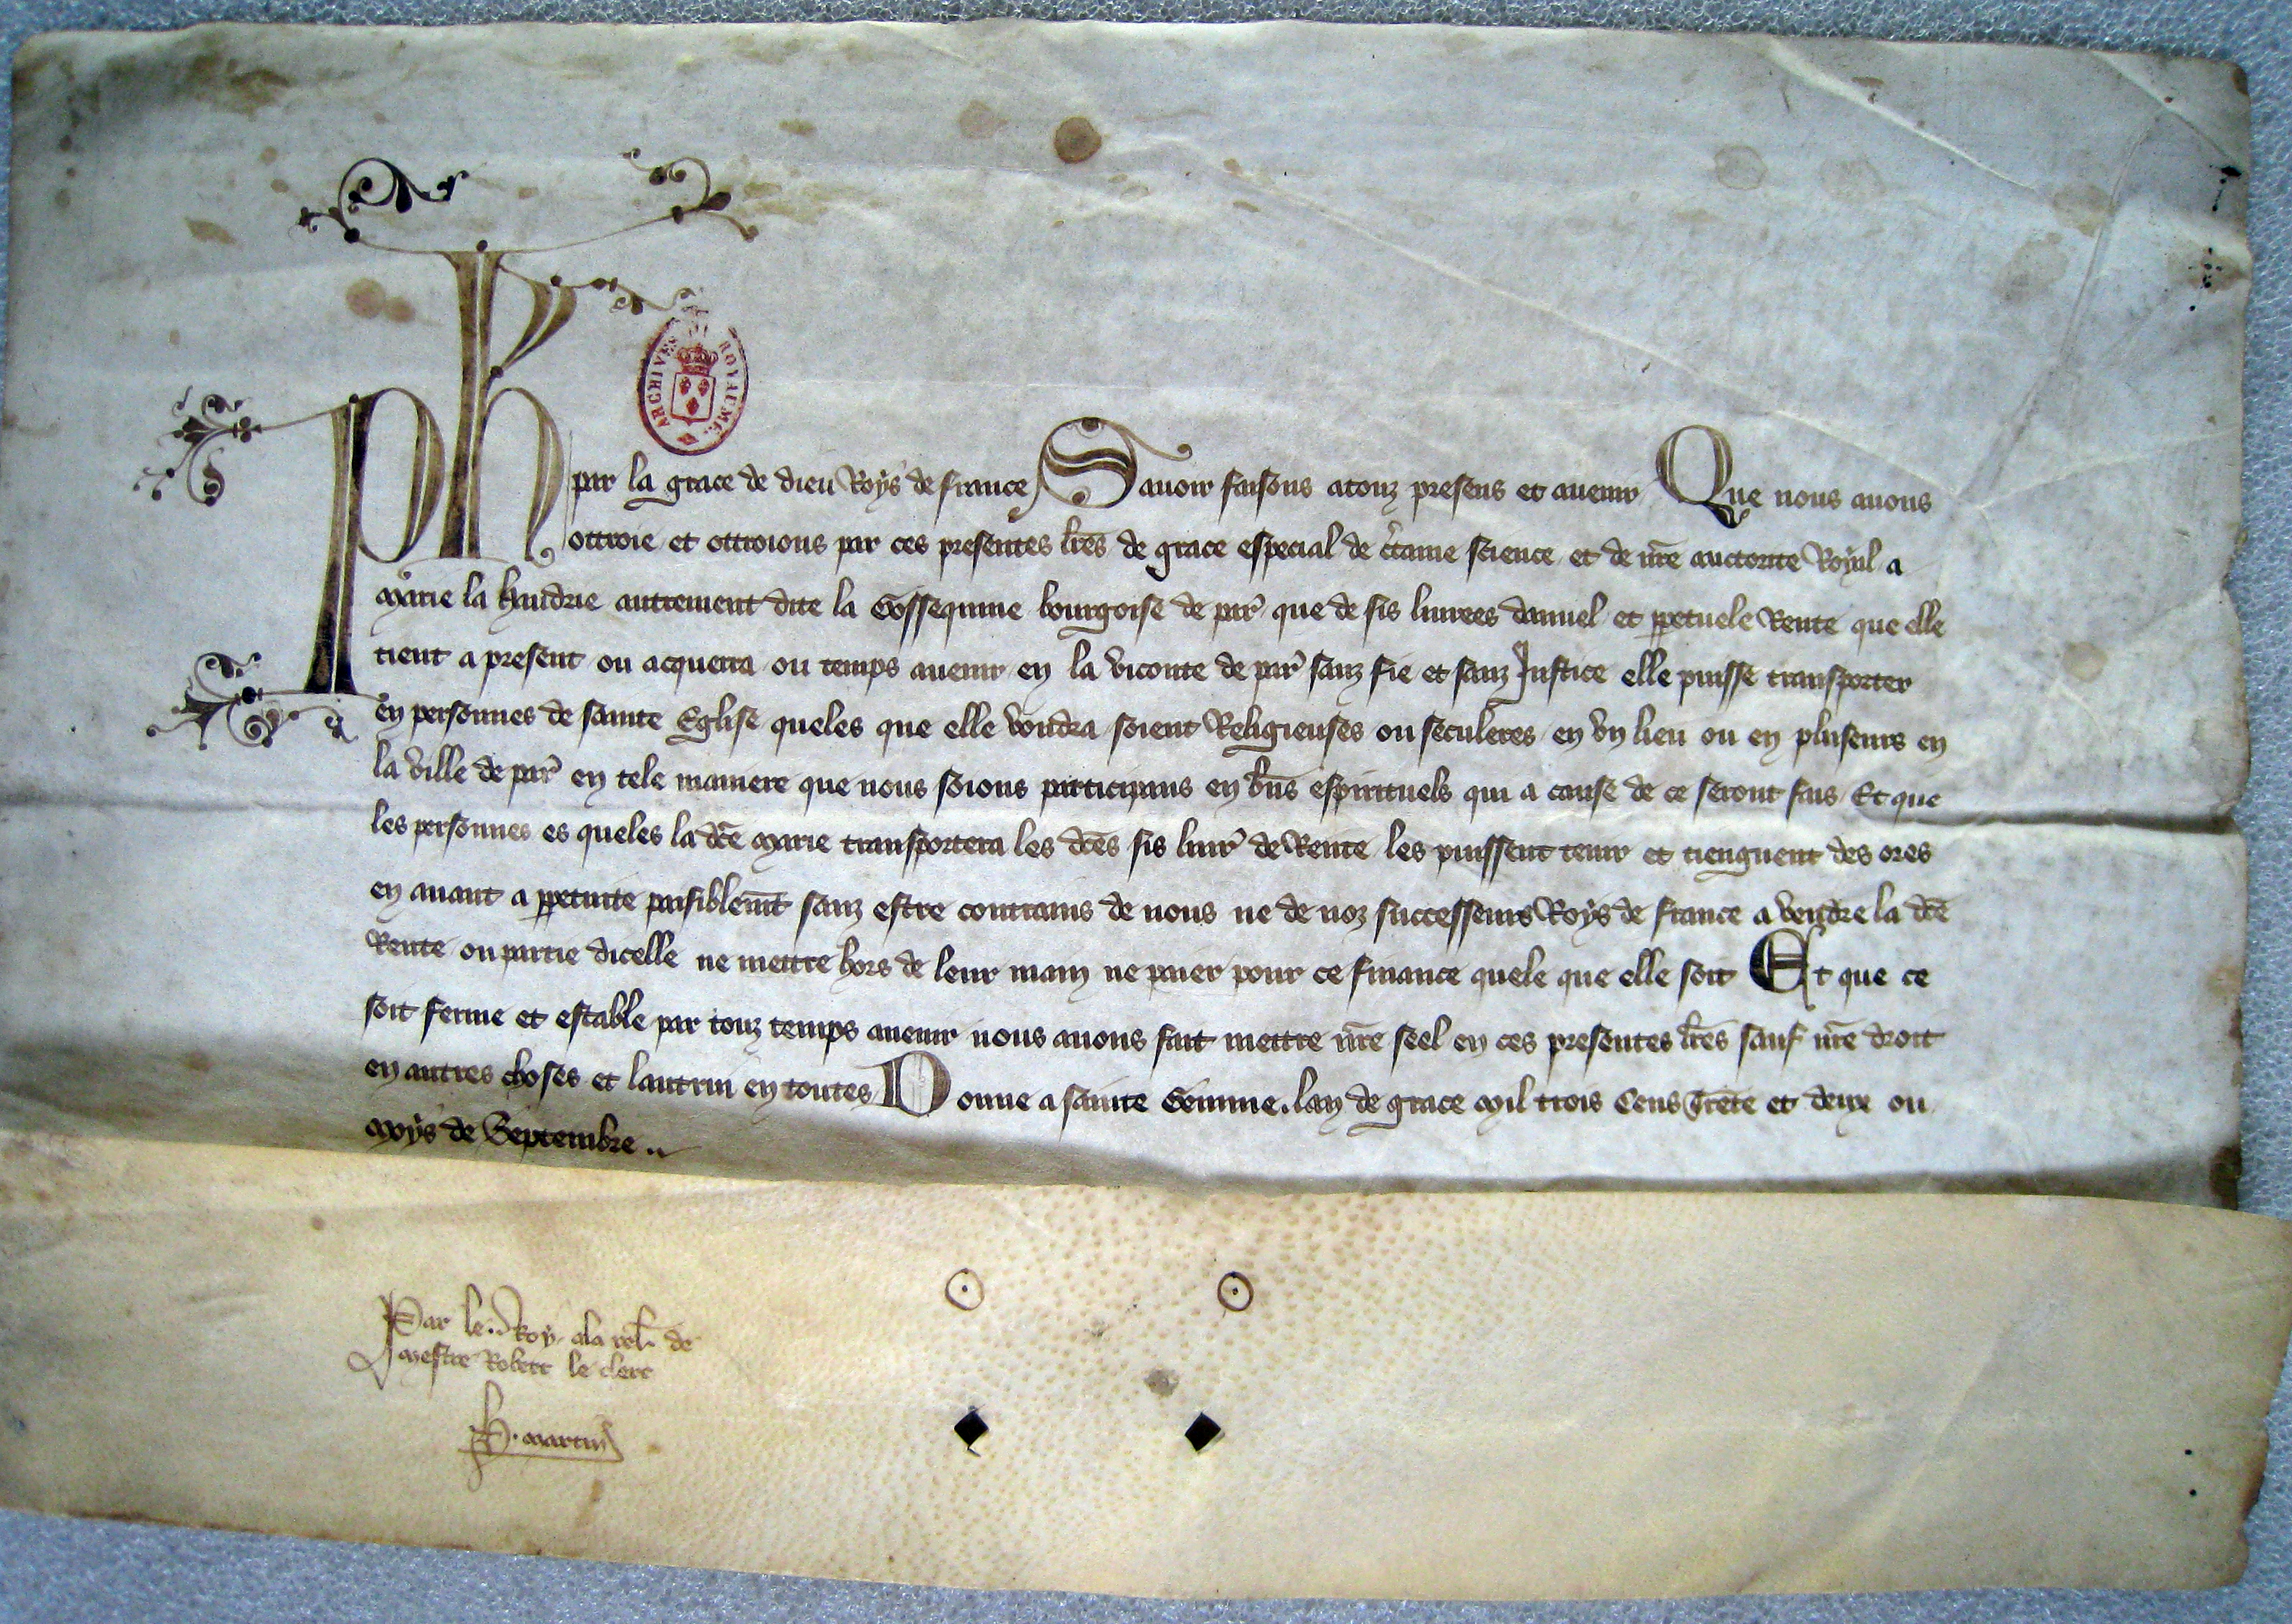 ARCHIVES ROYAUME
Ph par la grace de dieu Roys de france Sauoir faisons atouz presens et auenir Que nous auons
ottroie et ottroions par ces presentes lres de grace especial de ctaine science et de nre auctorite Royal a
Marie la autrement dite la bourgoise de par que de sis liurees danuel et ppetuele Rente que elle
tient a present ou acquerra ou temps auenir en la viconte de par sanz fie et sanz Justice elle puisse transporter
en personnes de sainte Eglise queles que elle voudra soient Religieuses ou seculeres en vn lieu ou en pluseurs en
la ville de par en tele maniere que nous soions participans en bns espirituels qui a cause de ce seront fais Et que
les personnes es queles la dce Marie transportera les dces sis liur de Rente les puissent tenir et tiengnent des ores
en auant a ppetuite paisiblemt sanz estre contrains de nous ne de noz successeurs Roys de france a vendre la dce
Rente ou partie dicelle ne mettre hors de leur main ne paier pour ce finance quele que elle soit Et que ce
soit ferme et estable par touz temps auenir nous auons fait mettre nre seel en ces presentes lres sauf nre droit
en autres choses et lautrui en toutes Donne a sainte Gemme. lan de grace Mil trois Cens Trete et deux ou
Moys de Septembre ..
Par le Roy ala rel de
Mestre Robert le clerc
Martin